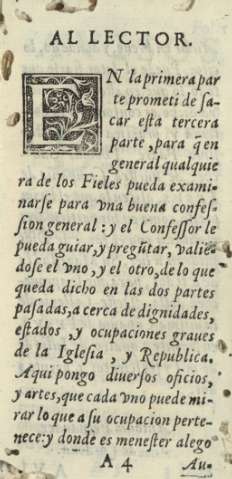 AL LECTOR.
EN la primera par
te prometi de sa-
car eſta tercera
parte, para q̃ en
general qualquie
ra de los Fieles pueda exami-
narſe para vna buena confeſ-
ſion general: y el Confeſſor le
pueda guiar, y pregũtar, valiẽ
doſe el vno, y el otro, de lo que
queda dicho en las dos partes
paſadas, a cerca de dignidades,
eſtados, y ocupaciones graues
de la Igleſia, y Republica.
Aqui pongo diuerſos oficios,
y artes, que cada vno puede mi-
rar lo que a ſu ocupacion perte-
nece: y donde es meneſter alego
A 4 Au-